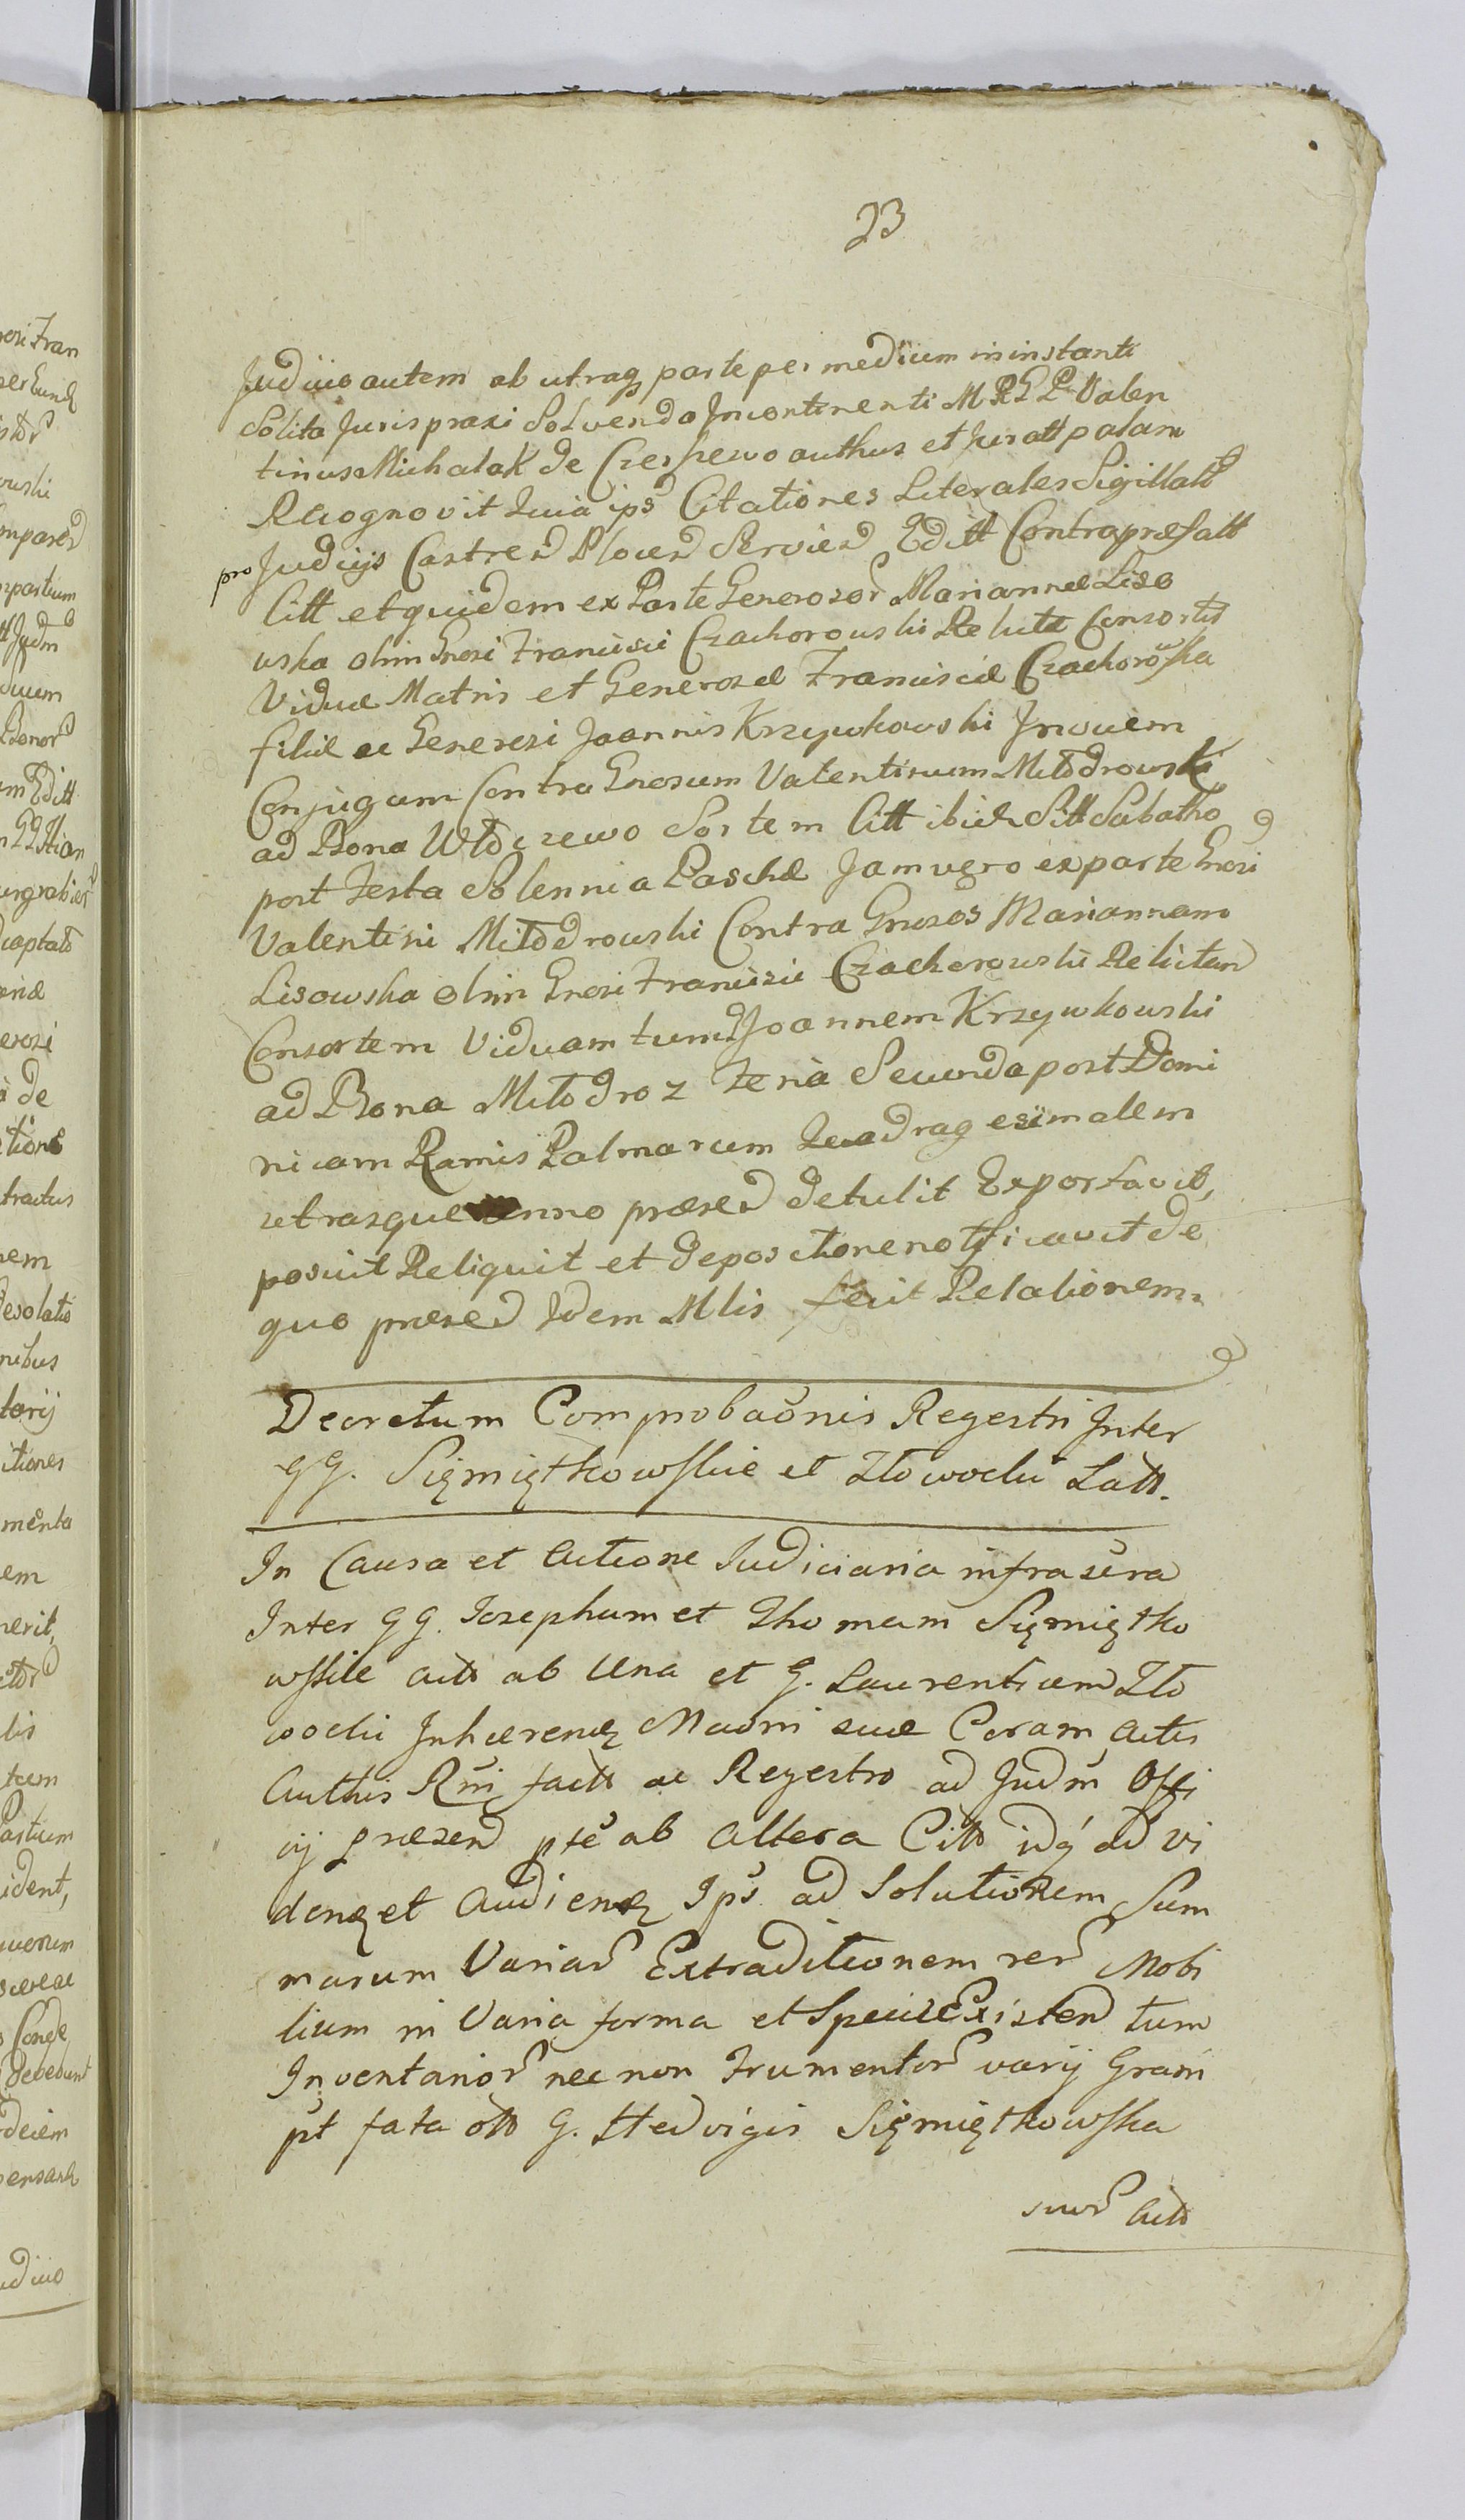 23
Judiuo autem ab utraq parte per medium in instanti
Solita Juris praxi Solvenda Incontinenti M R G P Valen
tinus Michalak de Czerhewo authus et Juratt palam
Recognovit Quia ips Citationes Literales Sigillatt
pro Judicijs Castren Plocen Servien Editt Contra præfatt
Citt et quidem ex Parte Generosor Mariannæ Liso
wska olim Gnosi Francisci Czachorowski Relictæ Consortis
Viduæ Matris et Generosæ Franciscæ Czachorowska
filiæ ac Generosi Joannis Krzywkowski Invicem
Conjugum Contra Gnosum Valentinum Miłodrowski
ad Bona Włoczewo Sortem Citt ibid Sitt Sabatho
post Festa Solennia Paschæ Jam vero ex parte Gnosi
Valentini Miłodrowski Contra Gnosos Mariannam
Lisowska olim Gnosi Francisci Czachorowski Relictam
Consortem Viduam tum Joannem Krzywkowski
ad Bona Miłodroz Feria Secunda post Domi
nicam Ramis Palmarum Quadragesimalem
utrasque anno præsen detulit Exportavit,
posuit Reliquit et depositione notificavit de
quo præsen Idem Mlis fecit Relationem.
Decretum Comprobaonis Regestri Inter
GG. Siemiętkowskie et Złowocki Latt.
In Causa et Actione Judiciaria infrascra
Inter GG. Josephum et Thomam Siemiętko
wskie actt ab Una et G. Laurentium Zło
wocki Inhærend Maoni suæ Coram Actis
Authis Rni factt ac Regestro ad Judm Offi
cij præsen pte ab Altera Citt idq ad vi
dend et Audiend Ips ad Solutionem Sum
marum Variar Extraditionem rer Mobi
lium in Varia forma et Specie Existen tum
Inventarior nec non Frumentor varij Grani
pt fata ott G. Hedvigis Siemiętkowska
suor Actt